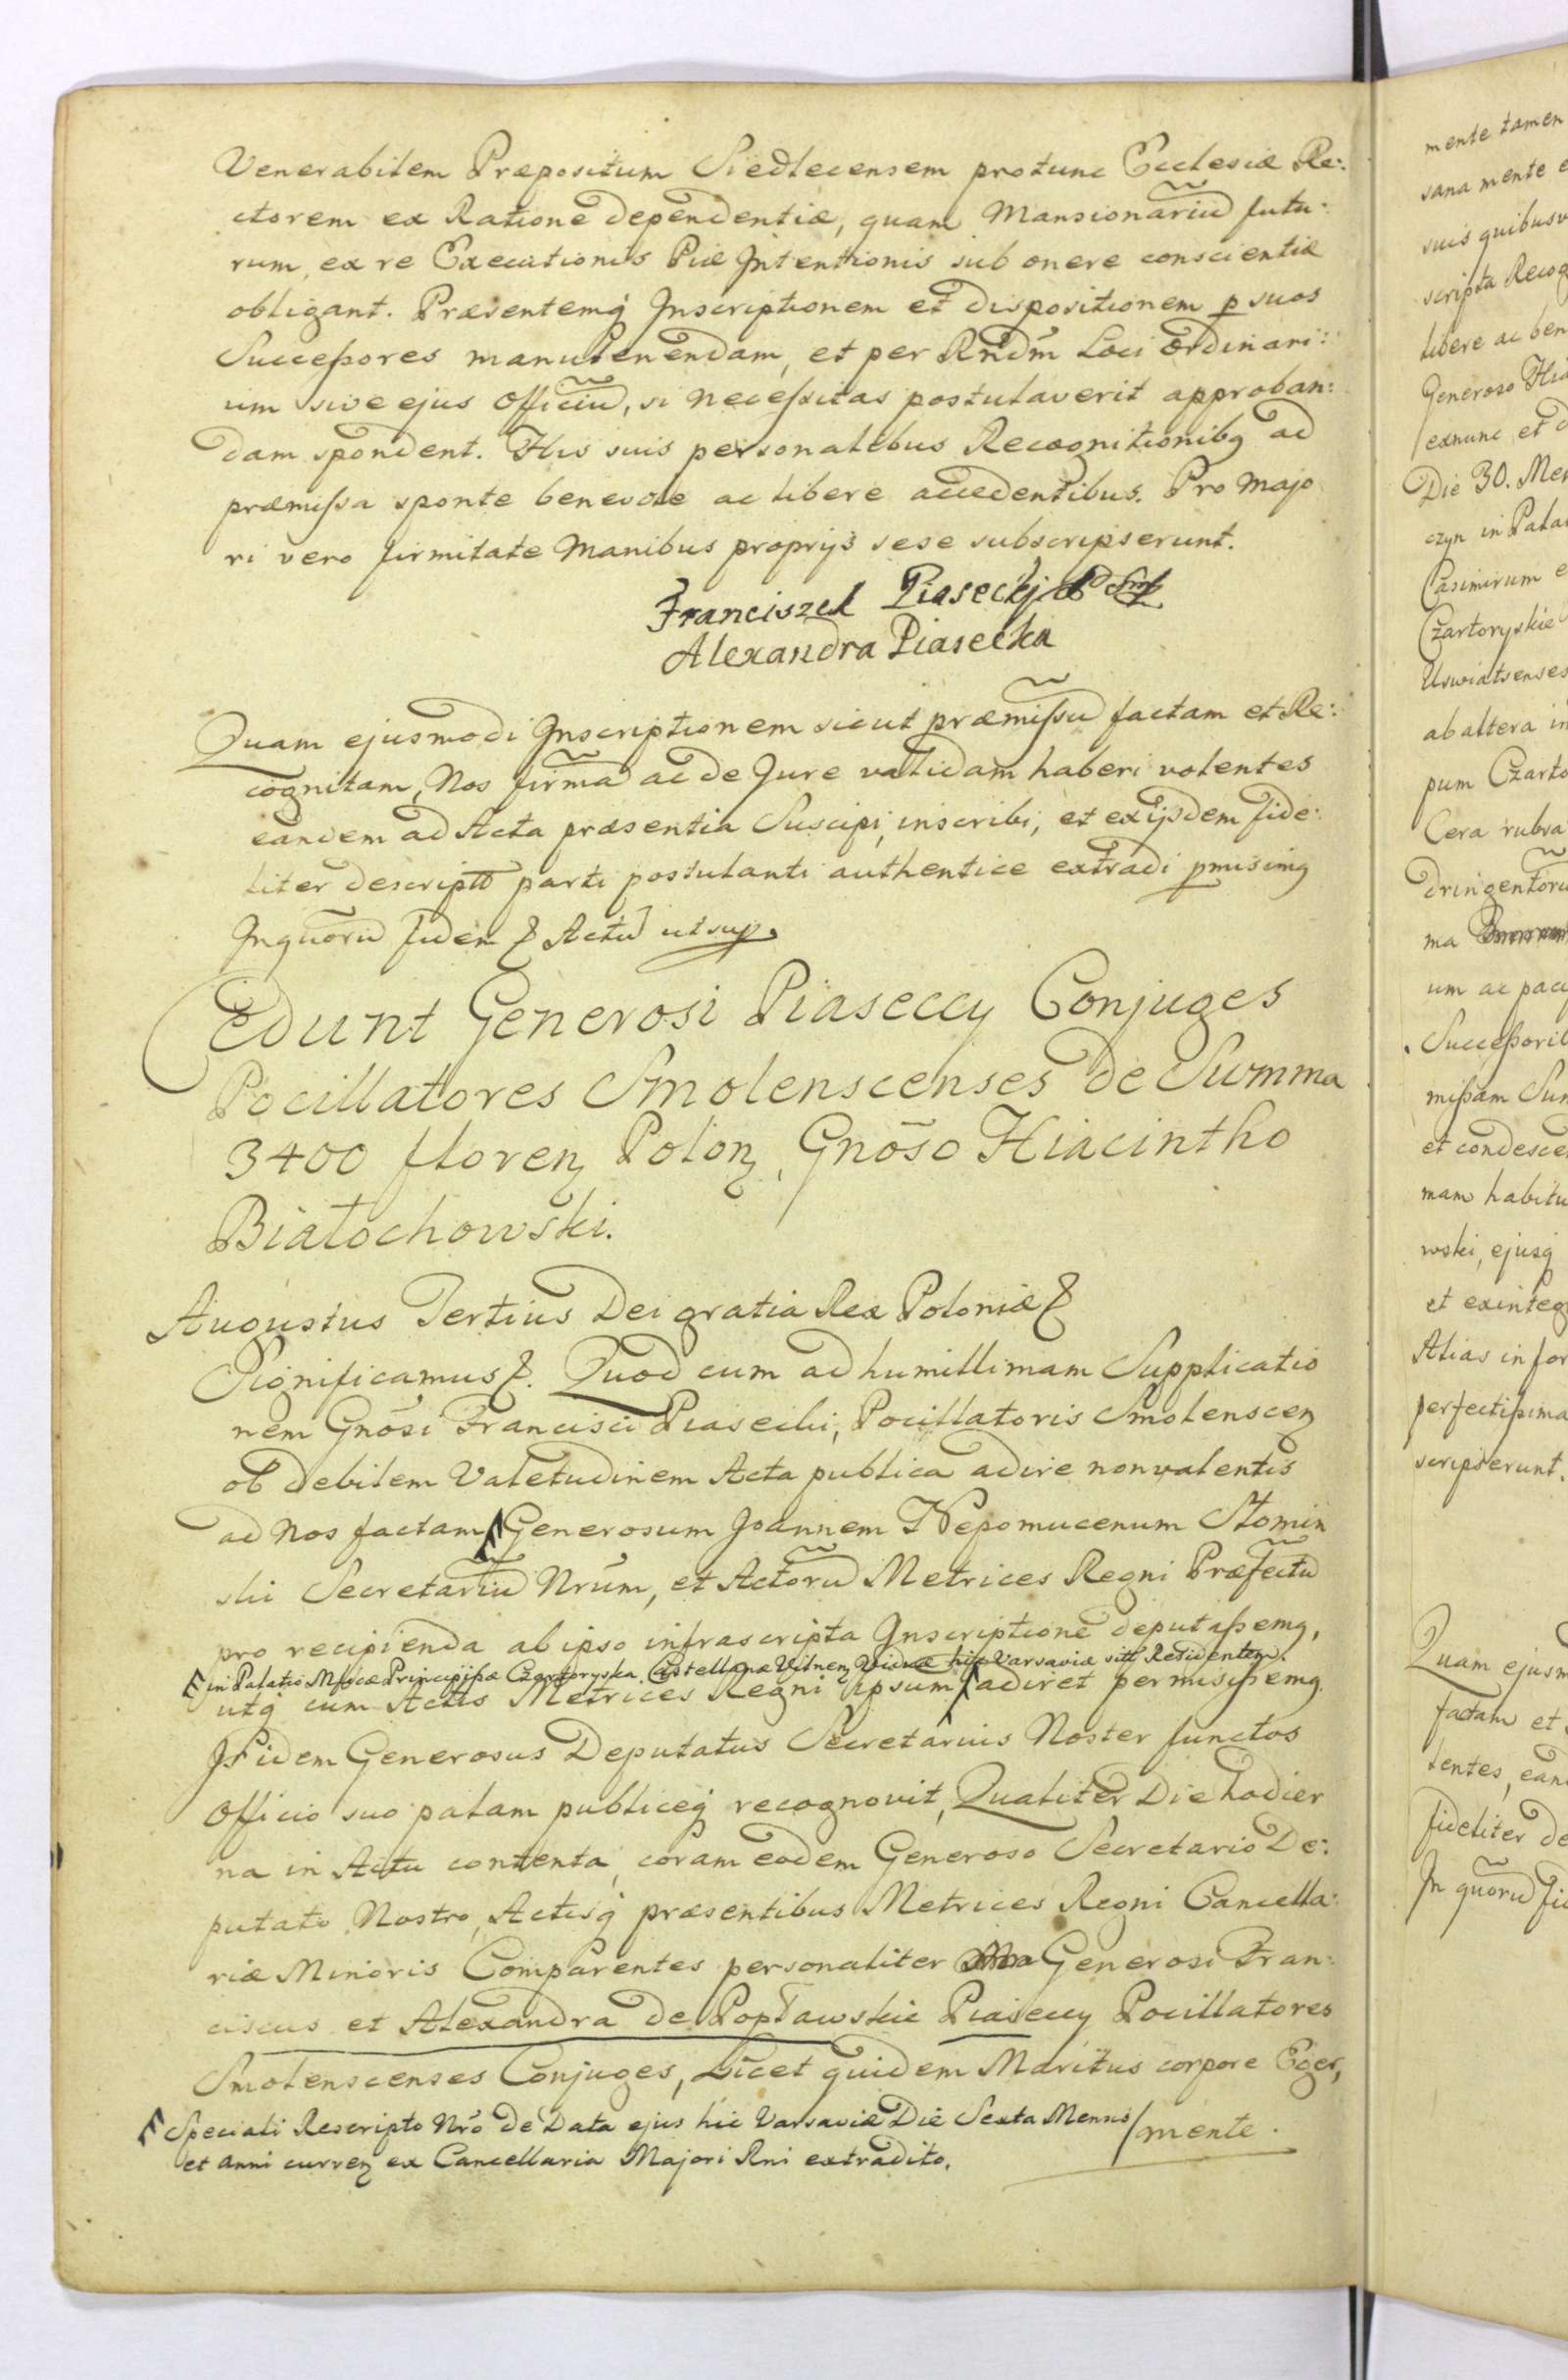 Venerabilem Præpositum Siedlecensem protunc Ecclesiæ Re:
ctorem ex Ratione dependentiæ, quam Mansionariũ futu:
rum, ex re Executionis Piæ Intentionis sub onere conscientiæ
obligant. Præsentemq Inscriptionem et dispositionem p suos
Successores manutenendam, et per Rndm̃ Loci Ordinari:
um sive ejus Officiũ, si necessitas postulaverit approban:
dam spondent. His suis personalibus Recognitionibq ad
præmissa sponte benevole ac libere accedentibus. Pro majo
ri vero firmitate Manibus proprijs sese subscripserunt.
Franciszek Piaseckj
Alexandra Piasecka
Quam ejusmodi Inscriptionem sicut præmissũ factam et Re:
cognitam, Nos firmã ac de Jure validam haberi volentes
eandem ad Acta præsentia Suscipi, inscribi, et ex ijsdem fide:
liter descriptã parti postulanti authentice extradi pmisimq
In quorũ fidem & Actũ ut sup.
Cedunt Generosi Piaseccy Conjuges
Pocillatores Smolenscenses de Summa
3400 floren Polon, Gnõso Hiacintho
Białochowski.
Augustus Tertius Dei gratia Rex Poloniæ &
Significamus &. Quod cum ad humillimam Supplicatio
nem Gnõsi Francisci Piasecki, Pocillatoris Smolenscen
ob debilem Valetudinem Acta publica adire non valentis
ad Nos factam Generosum Joannem Nepomucenum Słomin
ski Secretariũ Nrũm, et Actorũ Metrices Regni Præfectũ
pro recipienda ab ipso infrascripta Inscriptione deputassemq,
in Palatio Principissæ Czartoryska Castellanæ Vilnen Viduæ hic Varsaviæ Residentem
utq cum Actis Metrices Regni ipsum adiret permisissemq.
Is idem Generosus Deputatus Secretarius Noster functos
Officio suo palam publiceq recognovit, Qualiter Die hodier
na in Actu contenta, coram eodem Generoso Secretario De:
putato Nostro, Actisq præsentibus Metrices Regni Cancella:
riæ Minoris Comparentes personaliter Generosi Fran:
ciscus et Alexandra de Popławskie Piaseccy Pocillatores
Smolenscenses Conjuges, Licet quidem Maritus corpore Eger,
Speciali Rescripto Nrõ de Data ejus hic Varsaviæ Die Sexta Mensis
et anni curren ex Cancellaria Majori Rni extradito.
mente.
mente tamen
sana mente e
suis quibusv
scripta Recog
libere ac ben
Generoso Hia
exnunc et d
Die 30. Men
czyn in Pala
Casimirum e
Czartoryskie
Uswiatsenses
ab altera in
pum Czarto
Cera rubra
dringentorũ
ma
um ac paci
Successorib
missam Sum
et condesce
mam habitu
wski, ejusq
et exinteg
Alias in for
perfectissima
scripserunt.
Quam ejusm
factam et
lentes, ean
fideliter de
In quorũ fid